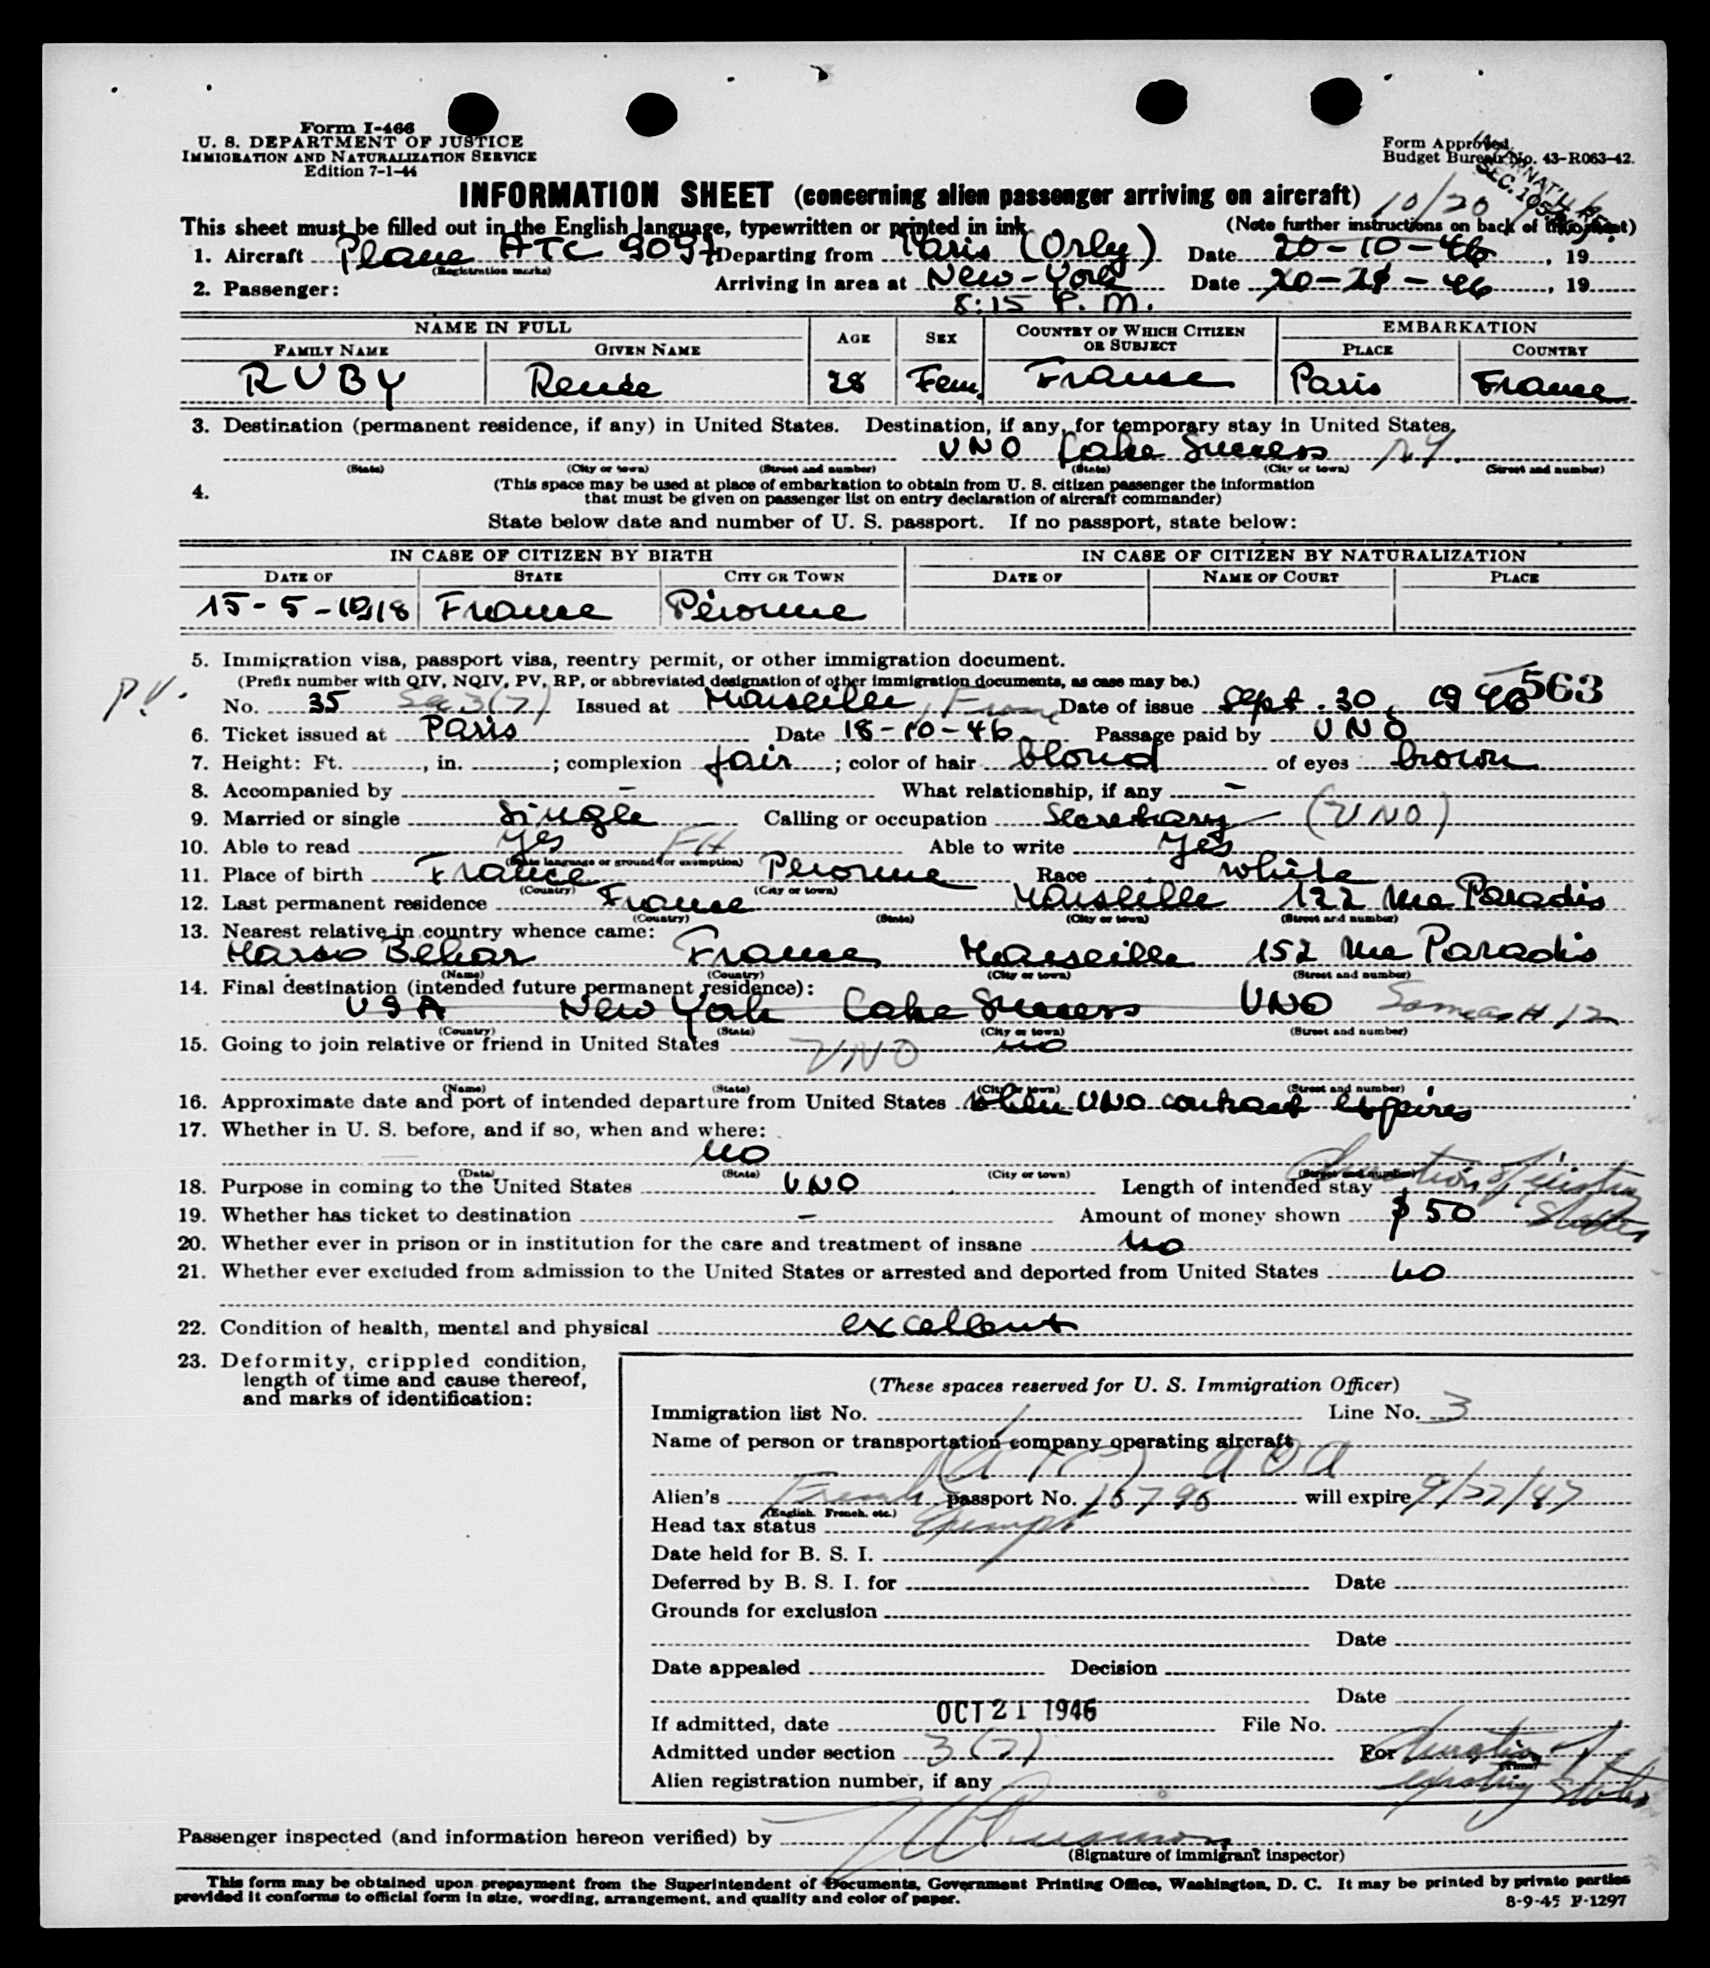 Form I-466
U. S. DEPARTMENT OF JUSTICE
IMMIGRATION AND NATURALIZATION SERVICE
Edition 7-1-44
Form Approved.
Budget Bureau No. 43-R063-42.
INTERNAT'L
SEC. 10
INFORMATION SHEET (concerning alien passenger arriving on aircraft)
10/20
This sheet must be filled out in the English language, typewritten or printed in ink. (Note further instructions on back of this sheet)
1. Aircraft Plane ATC 9097 Departing from Paris (Orly) Date 20-10-46, 19
(Registration marks)
2. Passenger: Arriving in area at New-York Date 20-21-46, 19
8:15 P. M.
NAME IN FULL AGE SEX COUNTRY OF WHICH CITIZEN OR SUBJECT EMBARKATION
FAMILY NAME GIVEN NAME PLACE COUNTRY
RUBY Renée 28 Fem. France Paris France
3. Destination (permanent residence, if any) in United States. Destination, if any, for temporary stay in United States.
UNO Lake Success N.Y.
(State) (City or town) (Street and number) (State) (City or town) (Street and number)
4. (This space may be used at place of embarkation to obtain from U. S. citizen passenger the information
that must be given on passenger list on entry declaration of aircraft commander)
State below date and number of U. S. passport. If no passport, state below:
IN CASE OF CITIZEN BY BIRTH IN CASE OF CITIZEN BY NATURALIZATION
DATE OF STATE CITY OR TOWN DATE OF NAME OF COURT PLACE
15-5-1918 France Péronne
5. Immigration visa, passport visa, reentry permit, or other immigration document.
(Prefix number with QIV, NQIV, PV, RP, or abbreviated designation of other immigration documents, as case may be.)
563
P.V. No. 35 Sec 3(7) Issued at Marseille, France Date of issue Sept. 30, 1946
6. Ticket issued at Paris Date 18-10-46 Passage paid by UNO
7. Height: Ft. , in. ; complexion fair ; color of hair blond of eyes brown
8. Accompanied by - What relationship, if any -
9. Married or single Single Calling or occupation Secretary (UNO)
10. Able to read Yes FH Able to write Yes
(State language or ground for exemption)
11. Place of birth France Peronne Race white
(Country) (City or town)
12. Last permanent residence France Marseille 122 rue Paradis
(Country) (State) (City or town) (Street and number)
13. Nearest relative in country whence came:
Marso Behar France Marseille 152 rue Paradis
(Name) (Country) (City or town) (Street and number)
14. Final destination (intended future permanent residence):
USA New York Lake Success UNO Same as # 12
(Country) (State) (City or town) (Street and number)
15. Going to join relative or friend in United States UNO no
(Name) (State) (City or town) (Street and number)
16. Approximate date and port of intended departure from United States When UNO contract expires
17. Whether in U. S. before, and if so, when and where:
no
(Date) (State) (City or town) (Street and number)
18. Purpose in coming to the United States UNO Length of intended stay duration of existing status
19. Whether has ticket to destination - Amount of money shown $50
20. Whether ever in prison or in institution for the care and treatment of insane no
21. Whether ever excluded from admission to the United States or arrested and deported from United States no
22. Condition of health, mental and physical excellent
23. Deformity, crippled condition,
length of time and cause thereof,
and marks of identification:
(These spaces reserved for U. S. Immigration Officer)
Immigration list No. 1 Line No. 3
Name of person or transportation company operating aircraft
(ATC) AOA
Alien's French passport No. 16796 will expire 9/27/47
(English, French, etc.)
Head tax status Exempt
Date held for B. S. I.
Deferred by B. S. I. for Date
Grounds for exclusion
Date
Date appealed Decision
Date
If admitted, date OCT 21 1946 File No.
Admitted under section 3(7) For duration of
(Time)
Alien registration number, if any existing status
Passenger inspected (and information hereon verified) by
(Signature of immigrant inspector)
This form may be obtained upon prepayment from the Superintendent of Documents, Government Printing Office, Washington, D. C. It may be printed by private parties
provided it conforms to official form in size, wording, arrangement, and quality and color of paper.
8-9-45 P-1297